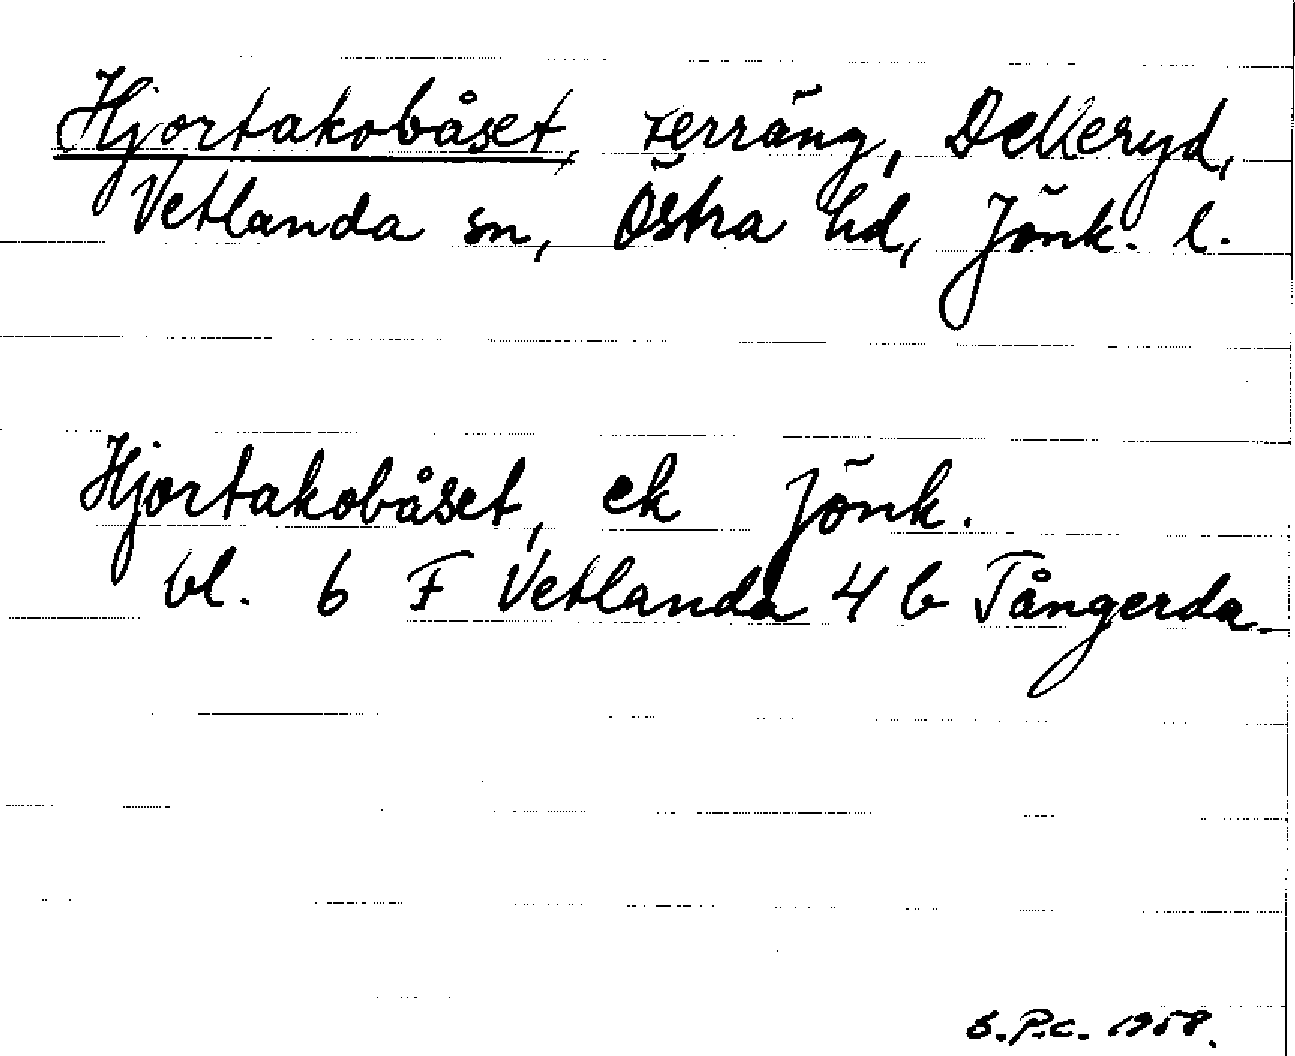 Hjortakobåset, terräng, Delleryd,
Vetlanda sn, Östra hd, Jönk. l.
Hjortakobåset, ek Jönk.
bl. 6 F Vetlanda 4 b Tångerda.
S.P.C. 1958.